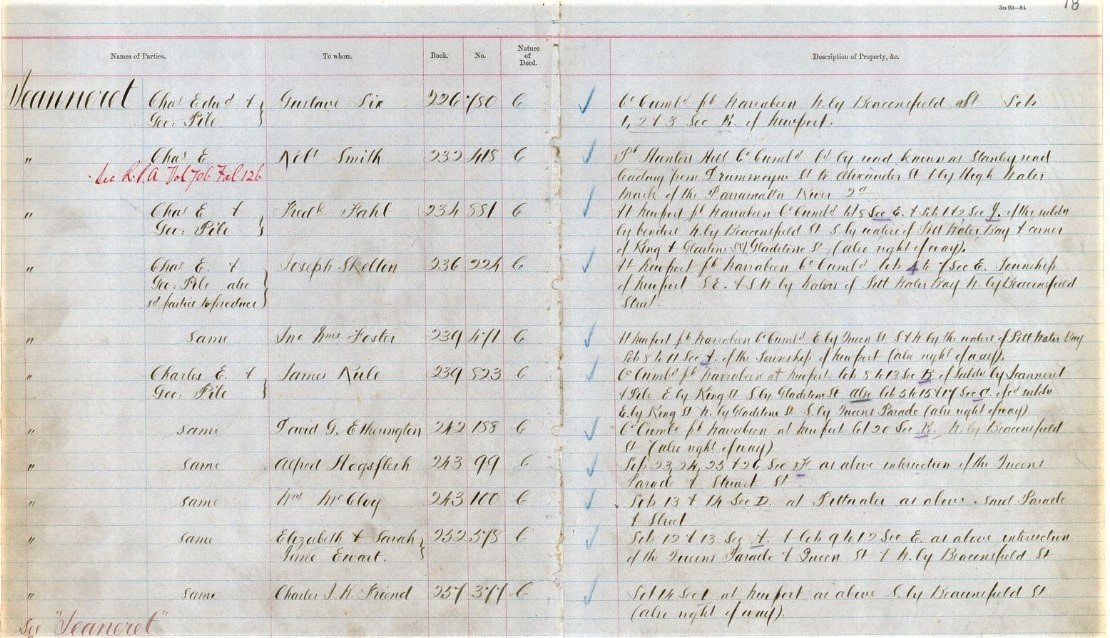 3m 99—84 18
Names of Parties. To whom. Book. No. Nature of Deed. Description of Property, &c.
Jeanneret Chas Edwd & Gustave Six 226 780 C Co Cumbd ph Narrabeen N. by Beaconsfield St Lots
Geo: Pile 1, 2 & 3 Sec of Newport.
" Chas E Robt Smith 232 418 C Pt Hunters Hill Co Cumbd by road known as Stanley road
See R.P.A Vol 706 Fol 126 leading from Drummoyne St to Alexander St S by High Water
Mark of the Parramatta River
" Chas E. & Fredk Fahl 234 881 C At Newport ph Narrabeen Co Cumbd lot 8 Sec E. & Lots 1 & 2 Sec J. of the subdn
Geo: Pile by vendors N. by Beaconsfield St S by waters of Pitt Water Bay & corner
of King & Gladstone St (also right of way).
" Chas E. & Joseph Skelton 236 224 C At Newport ph Narrabeen Co Cumbd Lots 4 to 7 Sec E. Township
Geo: Pile also of Newport S E. & S W by Waters of Pitt Water Bay N. by Beaconsfield
sd parties to produce Street
" same Jno Wms Foster 239 471 C At Newport ph Narrabeen Co Cumbd E by Queen St S & W by the waters of Pitt Water Bay
Lots 8 to 11 Sec of the Township of Newport (also right of way).
" Charles E. & James Rule 239 823 C Co Cumbd ph Narrabeen at Newport lots 8 to 13 Sec of subdn by Jeanneret
Geo: Pile & Pile E by King St S by Gladstone St also lots Sec C. of sd subdn
E. by King St N. by Gladstone St S. by Queens Parade (also right of way)
" same David G. Etherington 242 188 C Co Cumbd ph Narrabeen at Newport lot 20 Sec N. by Beaconsfield
St (also right of way)
" same Alfred Hogsflesh 243 99 C Lots 23, 24, 25 & 26 Sec as above intersection of the Queens
Parade & Stuart St
" same Wm McCloy 243 100 C Lots 13 & 14 Sec D. at Pittwater as above said Parade
& Street
" same Elizabeth & Sarah 252 578 C Lots 12 & 13 Sec & lots 9 to 12 Sec E. as above intersection
Jane Ewart. of the Queens Parade & Queen St & N. by Beaconsfield St
" same Charles J. H. Friend 257 377 C Lot 14 Sec at Newport as above S. by Beaconsfield St
See "Jeaneret" (also right of way).